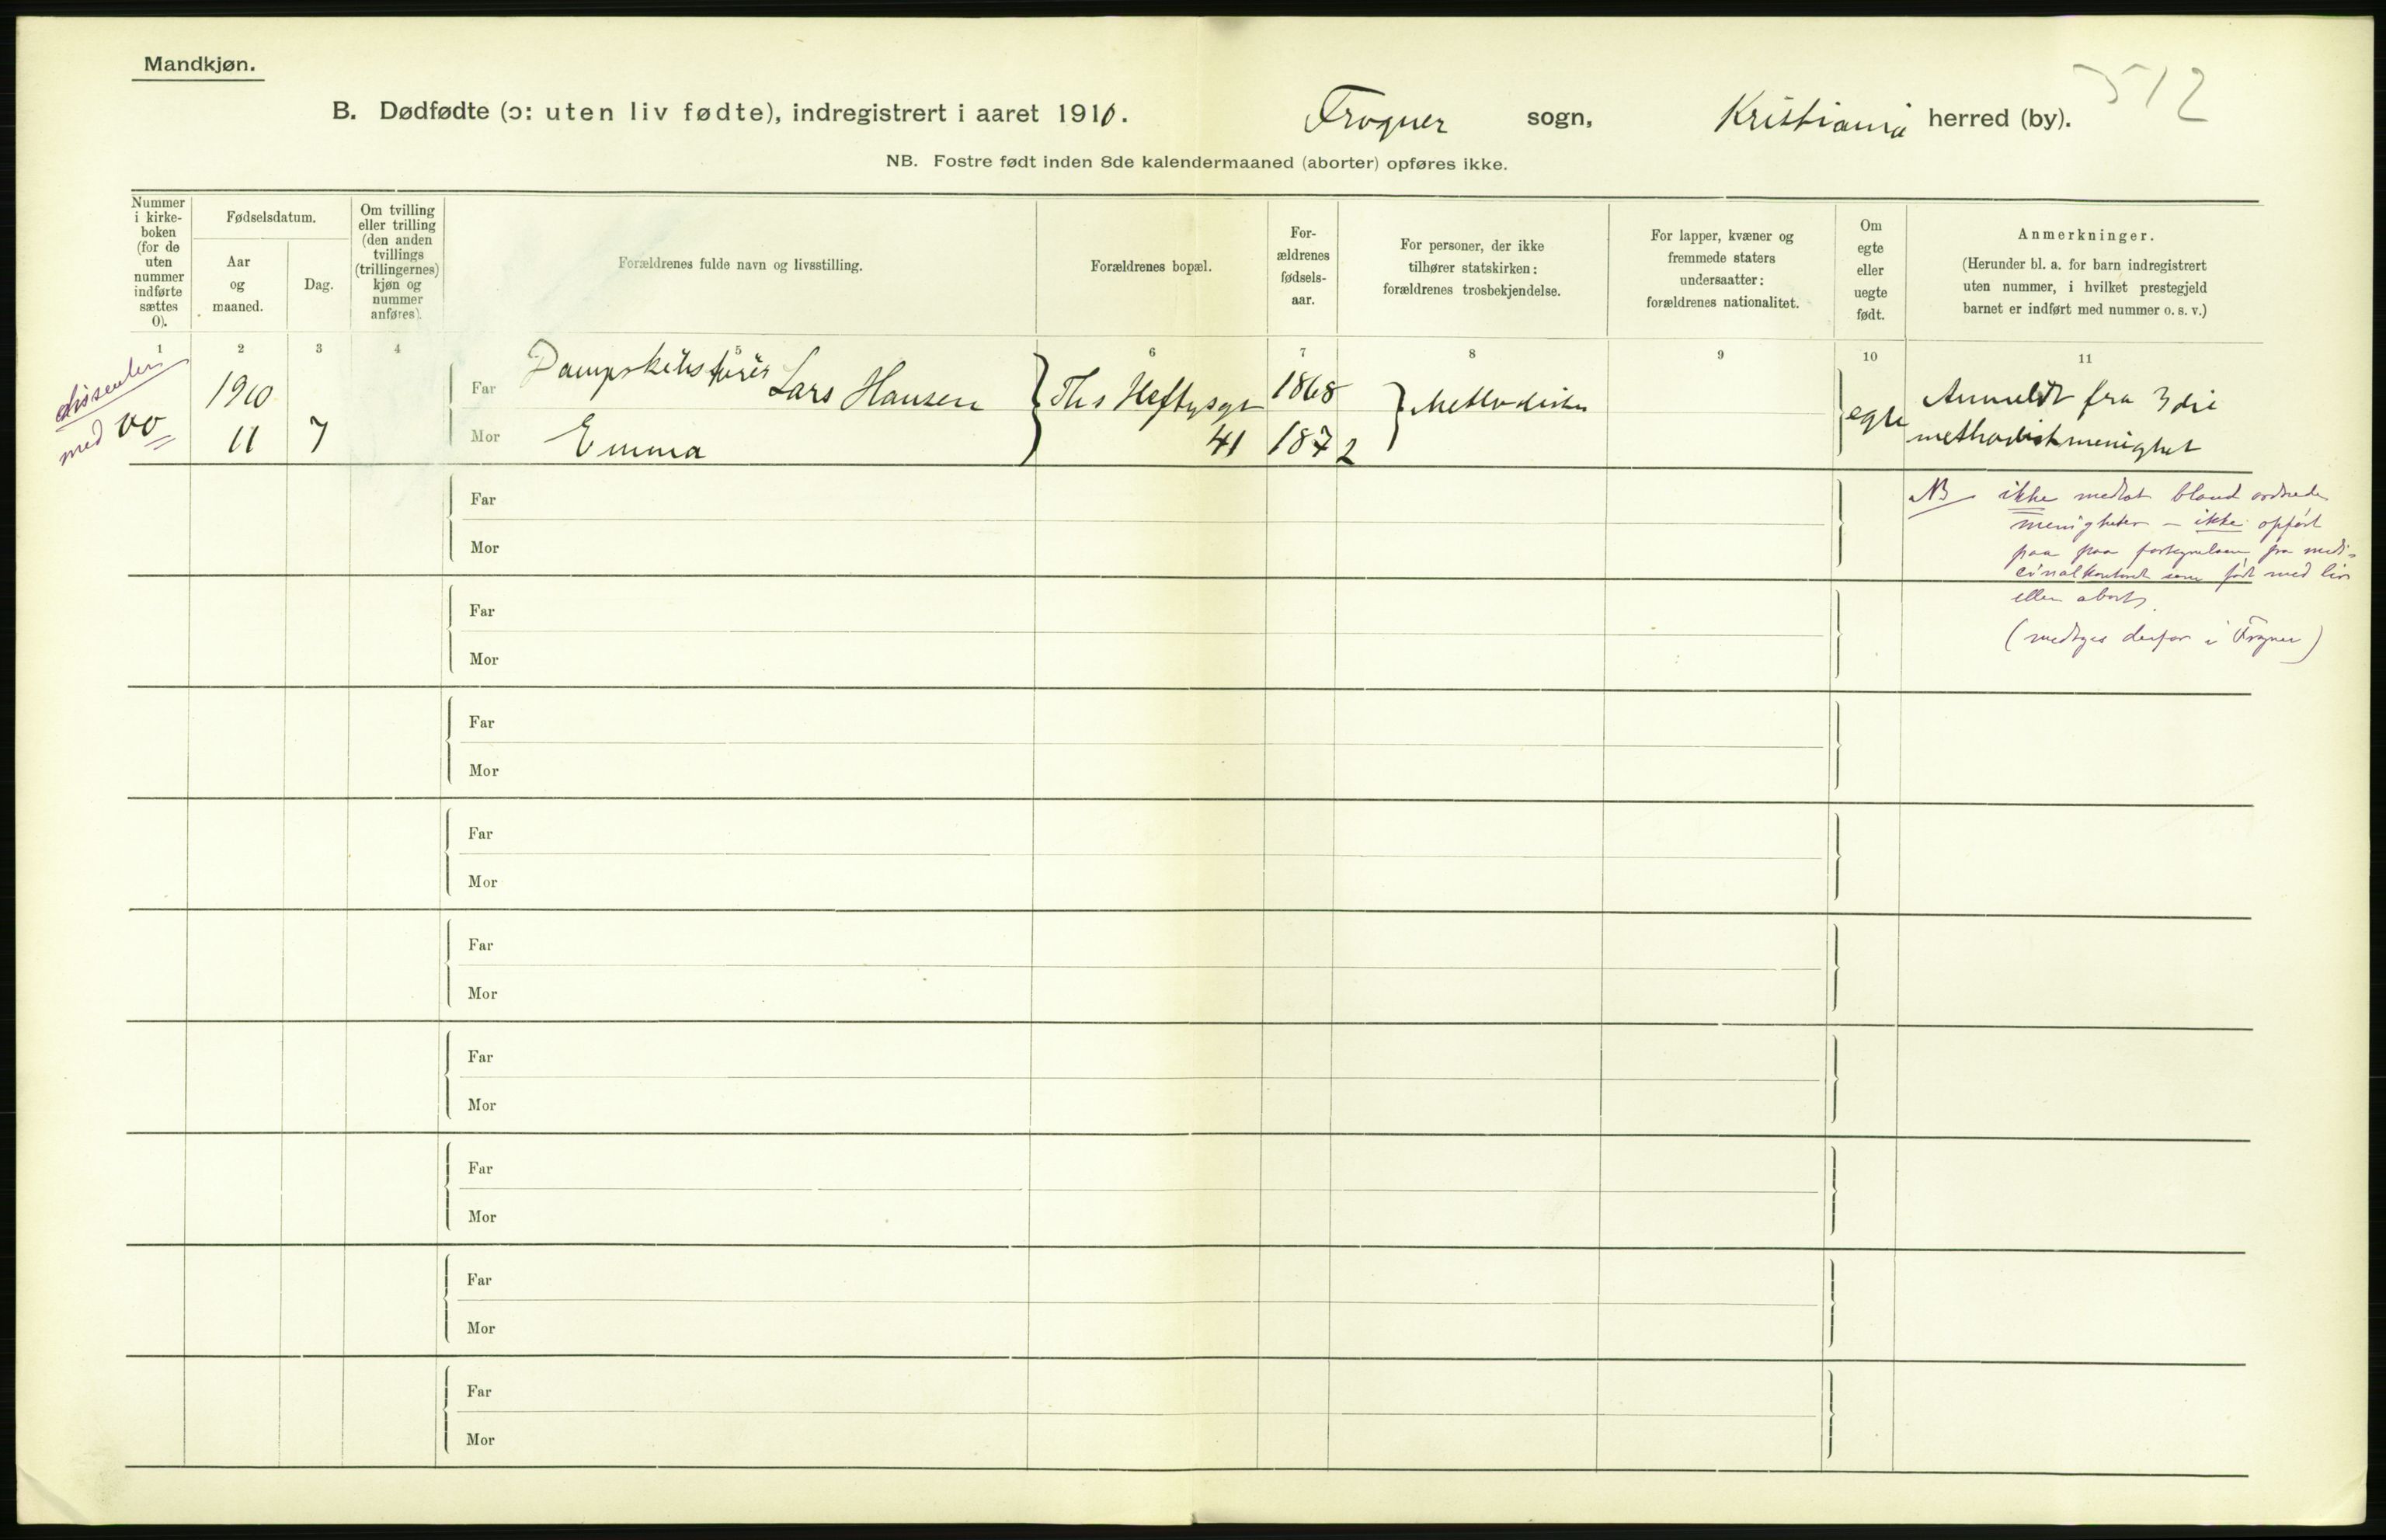 Mandkjøn.
512
B. Dødfødte (ɔ: uten liv fødte), indregistrert i aaret 1910. Frogner sogn, Kristiania herred (by).
NB. Fostre født inden 8de kalendermaaned (aborter) opføres ikke.
Nummer
i kirke-
boken
(for de
uten
nummer
indførte
sættes
0).
Fødselsdatum.
Aar
og
maaned.
Dag.
Om tvilling
eller trilling
(den anden
tvillings
(trillingernes)
kjøn og
nummer
anføres).
Forældrenes fulde navn og livsstilling.
Forældrenes bopæl.
For-
ældrenes
fødsels-
aar.
For personer, der ikke
tilhører statskirken:
forældrenes trosbekjendelse.
For lapper, kvæner og
fremmede staters
undersaatter:
forældrenes nationalitet.
Om
egte
eller
uegte
født.
Anmerkninger.
(Herunder bl. a. for barn indregistrert
uten nummer, i hvilket prestegjeld
barnet er indført med nummer o. s. v.)
1 2 3 4 5 6 7 8 9 10 11
dissenter
med 00
1910
11 7
Far Dampskibsfører Lars Hansen
Mor Emma
Ths Heftysgt
41
1868
1872
Methodister
egte
Anmeldt fra 3die
methodistmenighet
NB ikke medtat bland
menigheter – ikke opført
paa paa fortegnelsen fra medi-
cinalkontoret som født med liv
eller abort.
(medtages derfor i Frogner)
Far
Mor
Far
Mor
Far
Mor
Far
Mor
Far
Mor
Far
Mor
Far
Mor
Far
Mor
Far
Mor